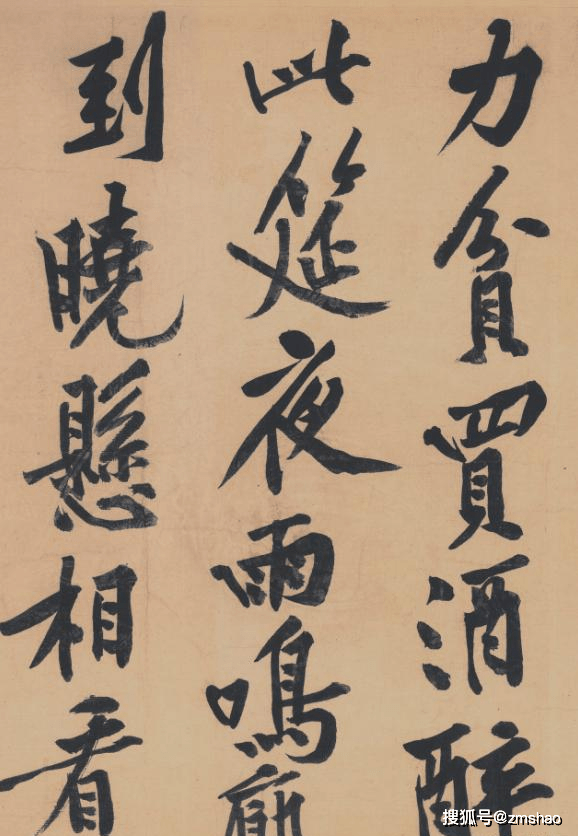 力貧買酒醉
此筵夜雨鳴廊
到曉懸相看
搜狐号@zmshao